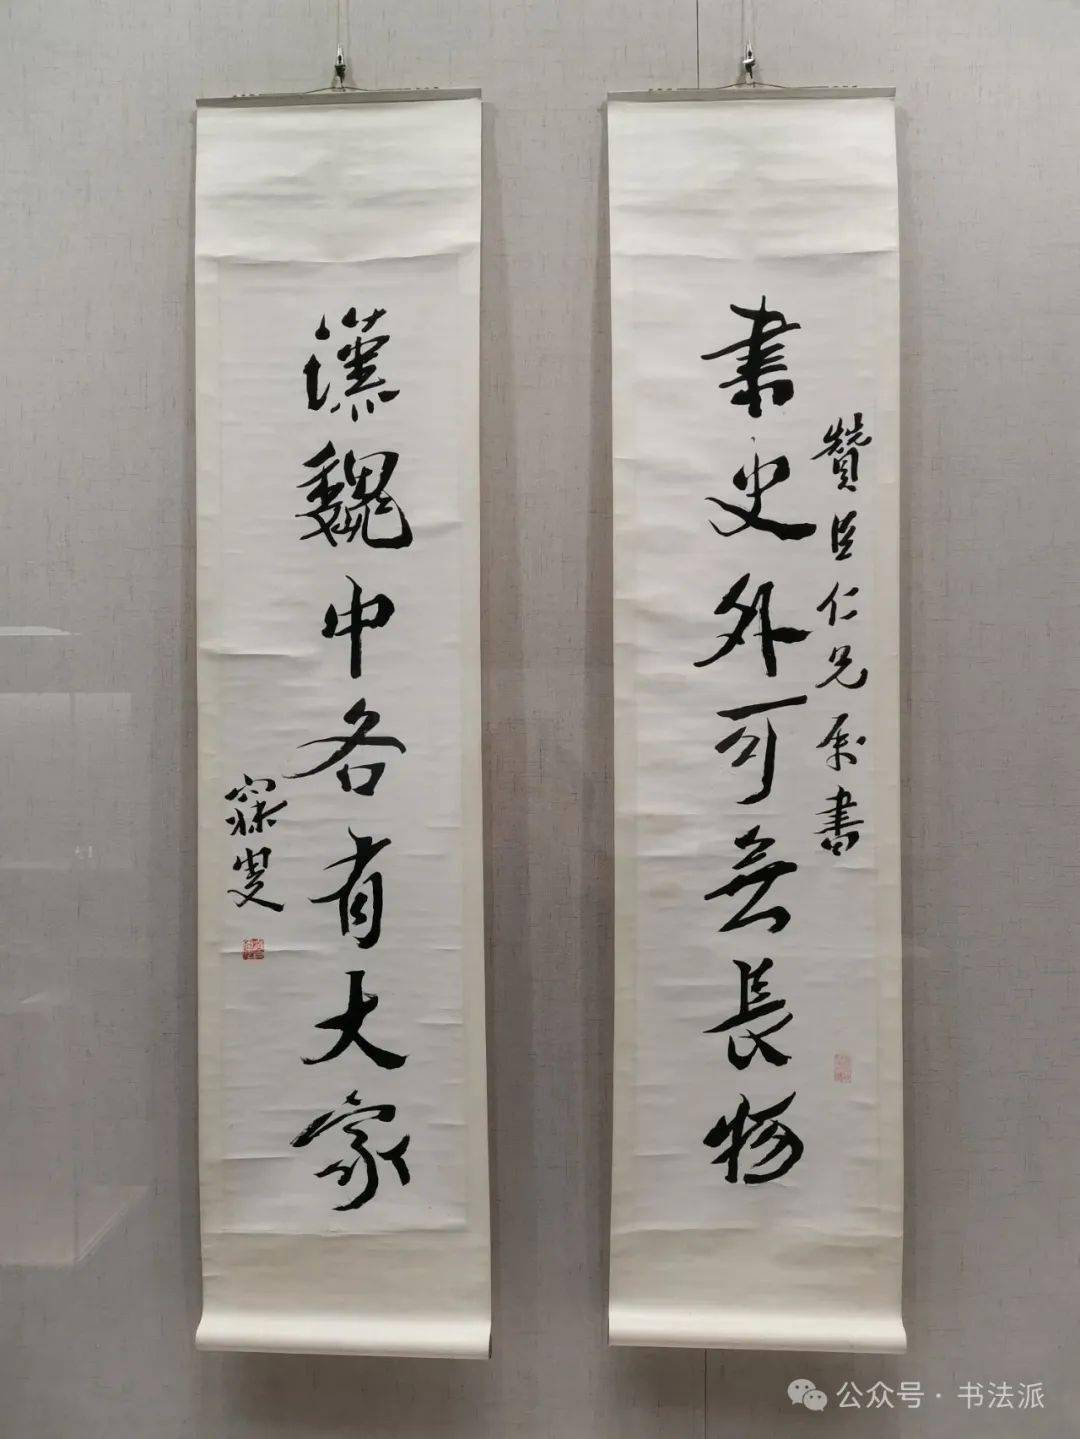 書史外可無長物
贊臣仁兄属書
漢魏中各有大家
寐叟
公众号·书法派